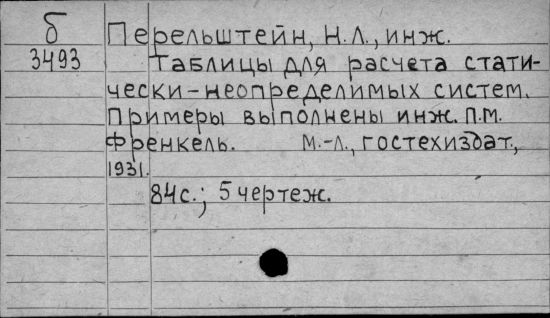 б
3493
Перельштейн, Н.Л., инж.
Таблицы для расчета стати-
чески-неопределимых систем.
Примеры выполнены инж. П.М.
Френкель. М.-Л., гостехиздат,
1931.
84с.; 5 чертеж.